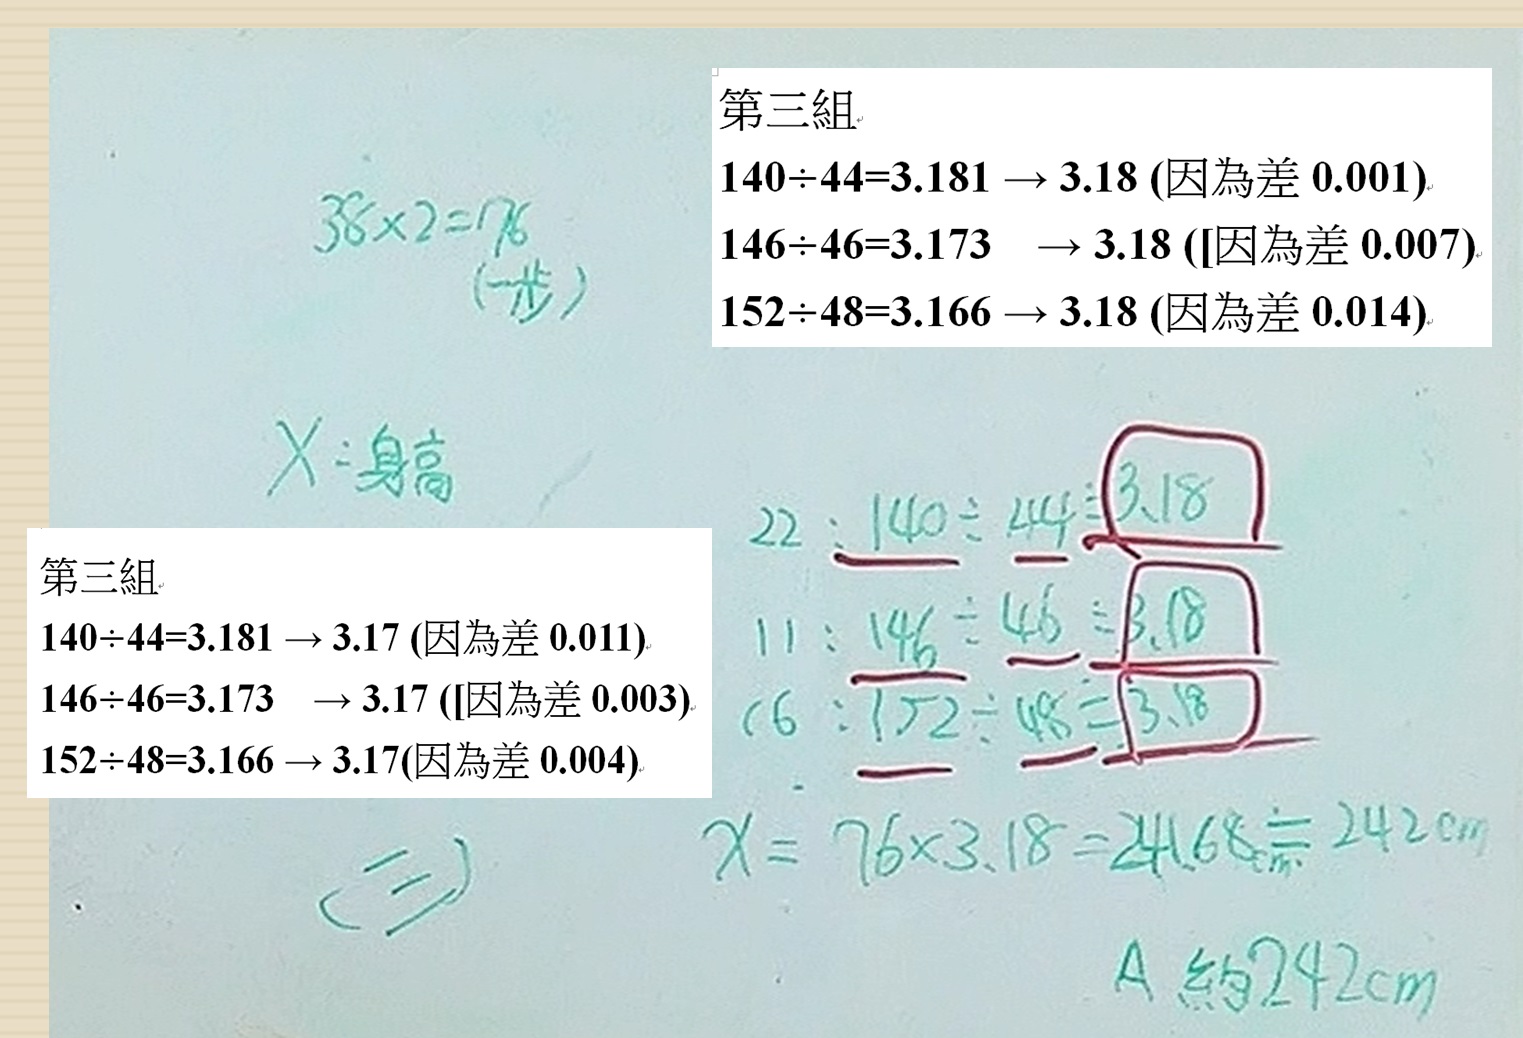 38×2=76
(一步)
第三組
140÷44=3.181 → 3.18 (因為差 0.001)
146÷46=3.173 → 3.18 ([因為差 0.007)
152÷48=3.166 → 3.18 (因為差 0.014)
X:身高
22:140÷44≒3.18
11:146÷46≒3.18
第三組
140÷44=3.181 → 3.17 (因為差 0.011)
146÷46=3.173 → 3.17 ([因為差 0.003)
152÷48=3.166 → 3.17(因為差 0.004)
16:152÷48≒3.18
X=76×3.18=241.68cm≒242cm
(三)
A 約242cm